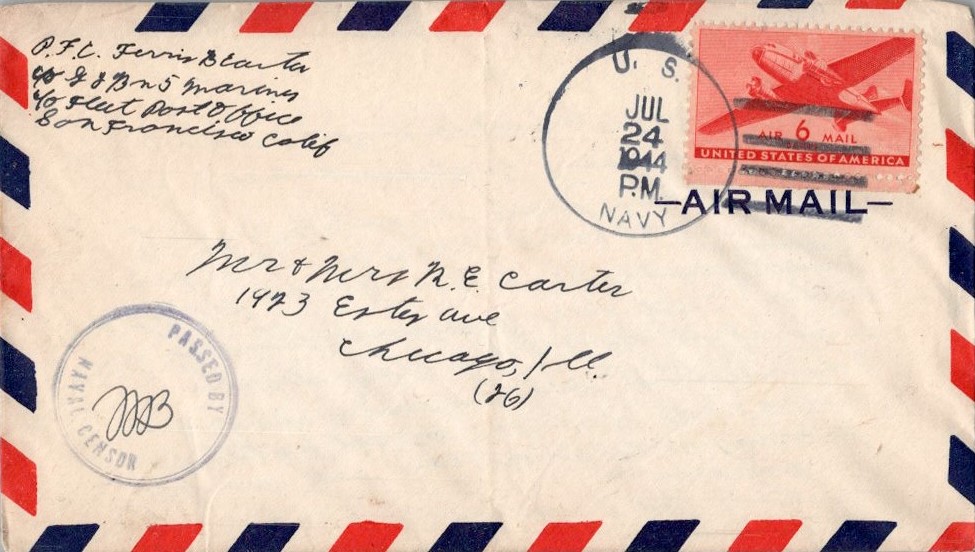 P.F.C. Ferris B Carter
5 Marines
c/o Fleet Post Office
San Francisco Calif
U. S.
JUL
24
1944
P.M.
NAVY
AIR 6 MAIL
UNITED STATES OF AMERICA
—AIR MAIL—
Mr & Mrs R. E. Carter
1923 ave
Chicago, Ill.
(26)
PASSED BY
NAVAL CENSOR